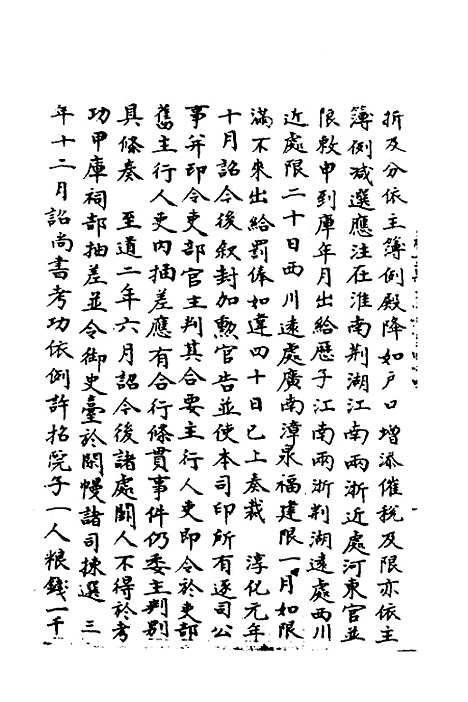 折及分依主簿例殿降如戶口增添催稅及限亦依主
簿例減選應注在淮南荆湖江南兩浙近處河東官並
限敕申到庫年月出給歷子江南兩浙荆湖遠處西川
近處限二十日西川遠處廣南漳泉福建限一月如限
滿不來出給罰俸如違四十日已上奏裁　淳化元年
十月詔令後敘封加勳官告並使本司印所有逐司公
事并印令吏部官主判其合要主行人吏即令於吏部
舊主行人吏內抽差應有合行條貫事件仍委主判別
具條奏　至道二年六月詔令後諸處闕人不得於考
功甲庫祠部抽差並令御史臺於閑慢諸司揀選　三
年十二月詔尚書考功依例許招院子一人粮錢一千